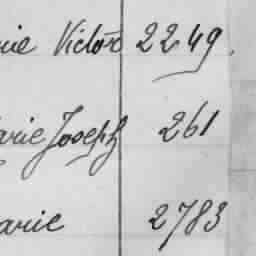 rie Victor 2249.
arie Joseph 261
arie 2783